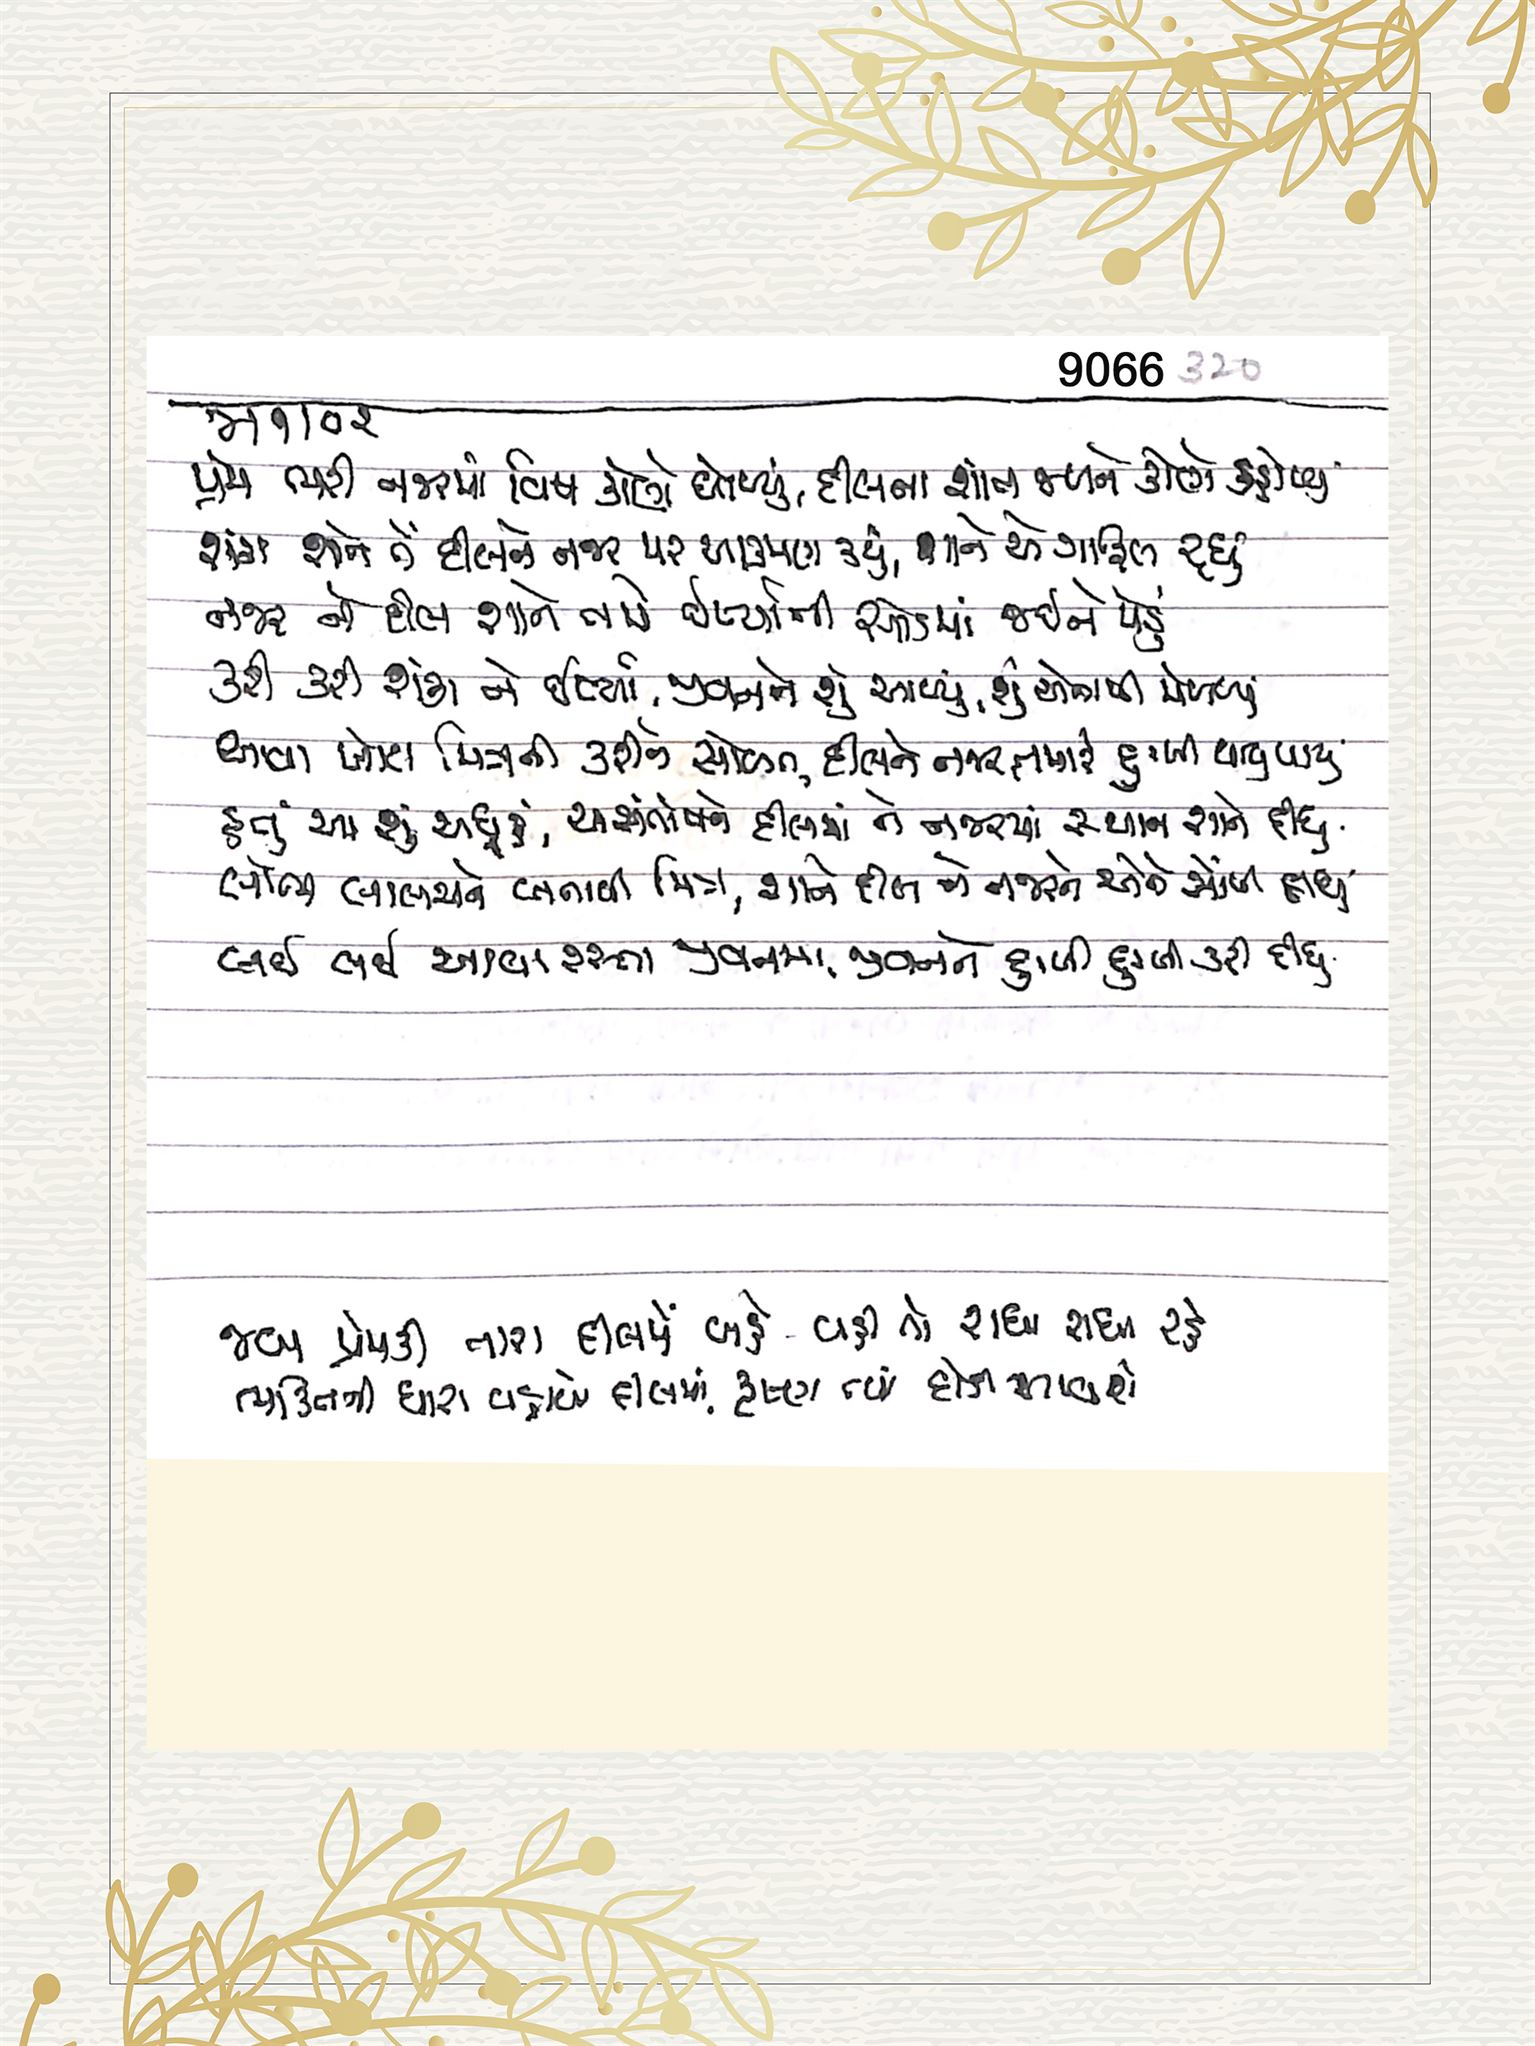 9066 320
પ્રેમ ભરી નજરમાં વિષ કોણે ઘોળ્યું, દીલના શાંત જળને કોણે ડહોળ્યું
શંકા શાને તેં દીલને નજર પર આક્રમણ કર્યું, શાને એ ગાફિલ રહ્યું
નજર ને દીલ શાને તમે ઈર્ષ્યાની સોડમાં જઈને પેઠું
કરી કરી શંકા ને ઈર્ષ્યા, જીવનને શું આપ્યું, શું એમાંથી મેળવ્યું
એવા ખોટા મિત્રની કરીને સોબત, દીલને નજર તમારે દુઃખી થાવું પડયું
હતું આ શું અધૂરું, અસંતોષને દીલમાં ને નજરમાં સ્થાન શાને દીધુ
લોભ લાલચને બનાવી મિત્ર, શાને દીલ ને નજરને એને સોંપી દીધું
લઈ લઈ આવા રસ્તા જીવનમાં, જીવનને દુઃખી દુઃખી કરી દીધુ
જ્યાં પ્રેમથી તારા દીલમેં કહે વહી તો રાધા રાધા રહે
ભક્તિની ધારા વહાવો દીલમાં, કૃષ્ણ ત્યાં દોડી આવશે